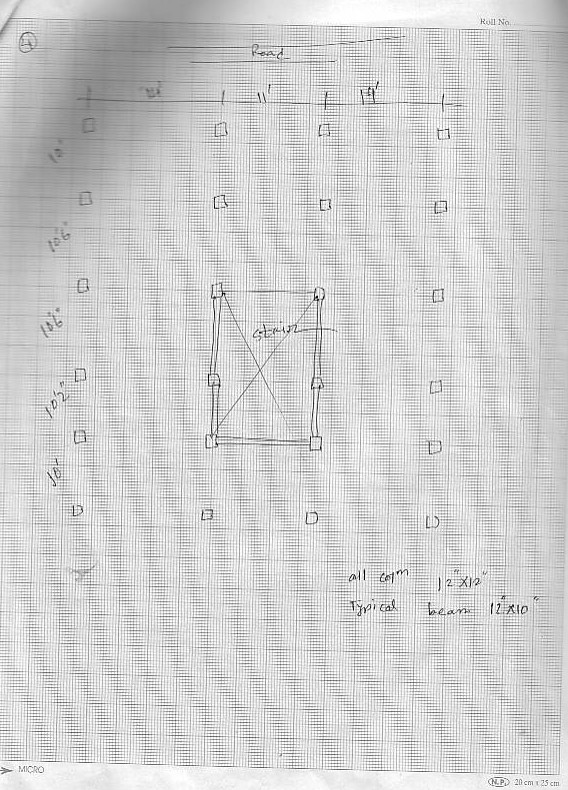 Roll No.
4
Road
11' 14'
10'
10'6"
10'6"
stair
10'2"
10'
all colm 12"X12"
Typical beam 12"X10"
MICRO
N.P. 20 cm x 25 cm